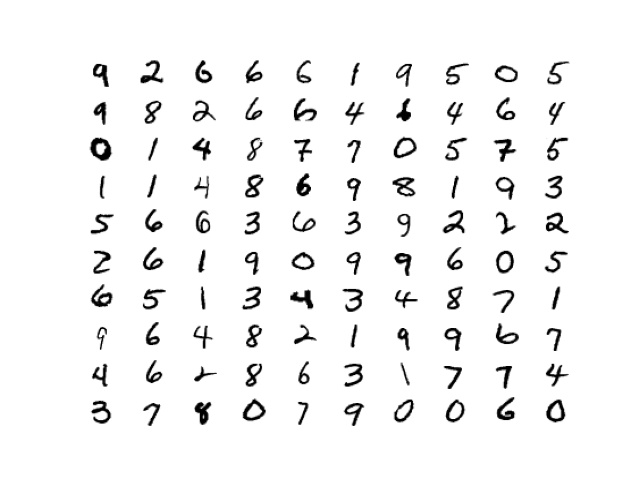 9 2 6 6 6 1 9 5 0 5
9 8 2 6 6 4 1 4 6 4
0 1 4 8 7 7 0 5 7 5
1 1 4 8 6 9 8 1 9 3
5 6 6 3 6 3 9 2 2 2
2 6 1 9 0 9 9 6 0 5
6 5 1 3 4 3 4 8 7 1
9 6 4 8 2 1 9 9 6 7
4 6 2 8 6 3 1 7 7 4
3 7 8 0 7 9 0 0 6 0